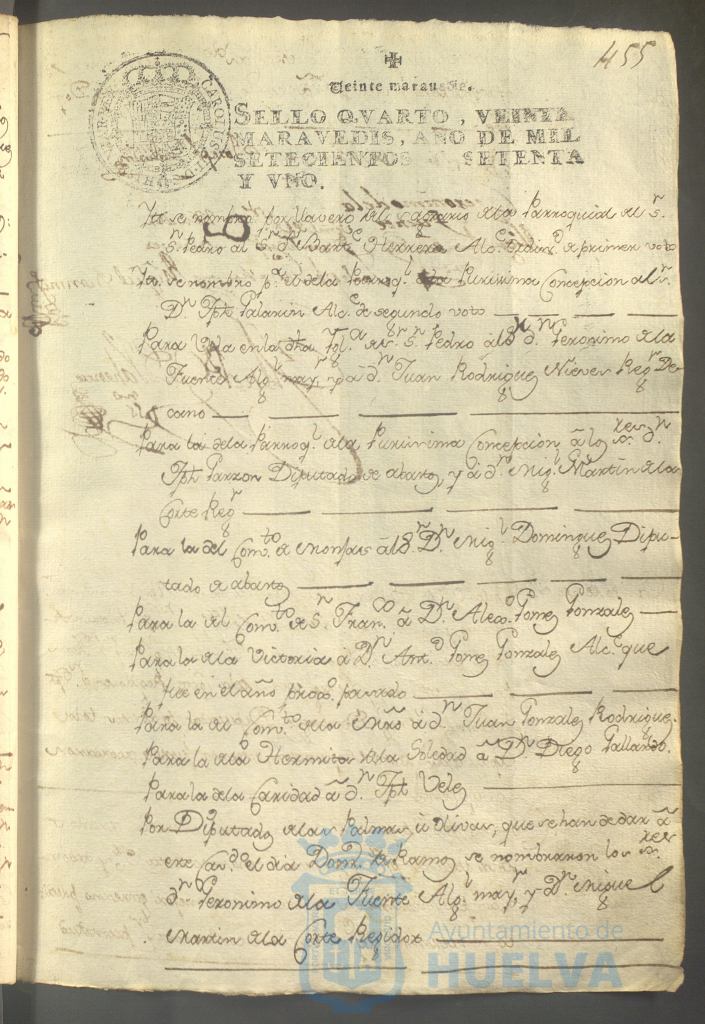 455
Veinte marauedis.
SELLO QVARTO, VEINTE
MARAVEDIS, AÑO DE MIL
SETECIENTOS SETENTA
Y VNO.
Itt se nombró por llavero del Sagrario de la Parroquial del Sr.
Sn Pedro al Sr. Dn Barte Herrera Alce Ordino de primer voto
Itt. se nombro pa el de la Parroql de la Purissima Concepcion al Sr.
Dn Jph Palarin Alce de segundo voto
Para la en la dha Igla de Sr Sn Pedro al Sr dn Geronimo de la
Fuente Algl mayr y a dn Juan Rodriguez Nieves Regr De-
cano
Para la de la Parroql de la Purissima Concepcion â los sres dn
Jph Garzon Diputado de abasto, y â dn Migl Martin de la
Corte Regr
Para la del Comto de Monjas âl Sr Dn Migl Dominguez Dipu-
tado de abasto
Para la del Comto de Sn Franco â Dn Alexo Gomez Gonzalez
Para la de la Victoria â Dn Anto Gomez Gonzalez Alce que
fue en el año proxo. passado
Para la del Comto de la Mrd â dn Juan Gonzalez Rodriguez.
Para la de la Hermita de la Soledad â Dn Diego Gallardo.
Para la de la Caridad â dn Jph Velez
Por Diputados de las Palmas ù olivas, que se han de dar â
este Cavdo el dia Domo de Ramos se nombraron los sres
dn Geronimo de la Fuente Algl mayr, y Dn Miguel
Martin de la Corte Regidor
Ayuntamiento de
HUELVA